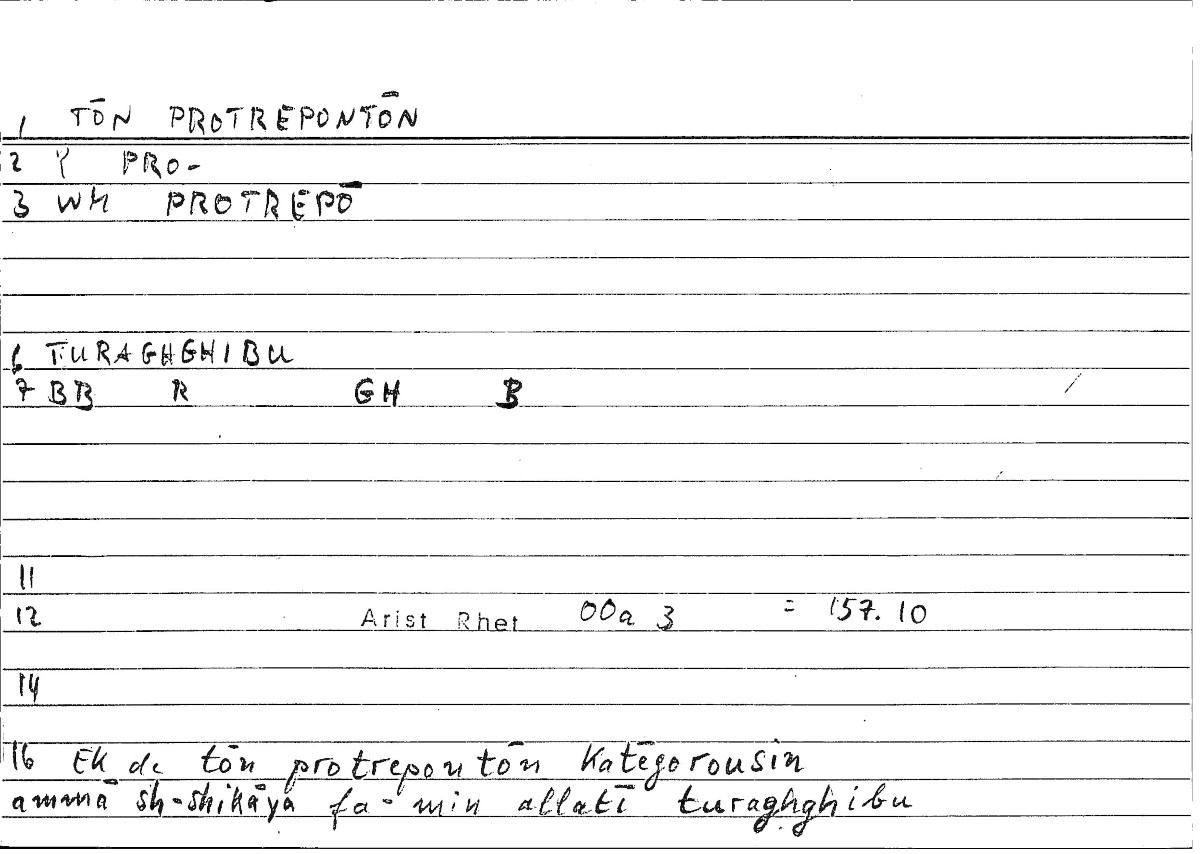 1 TŌN PROTREPONTŌN
2 PRO-
3 WH PROTREPŌ
6 TURAGHGHIBU
7 BB R GH B
11
12 Arist Rhet 00a 3 = 157.10
14
16 Ek de tōn protrepontōn katēgorousin
ammā sh-shikāya fa-min allatī turaghghibu